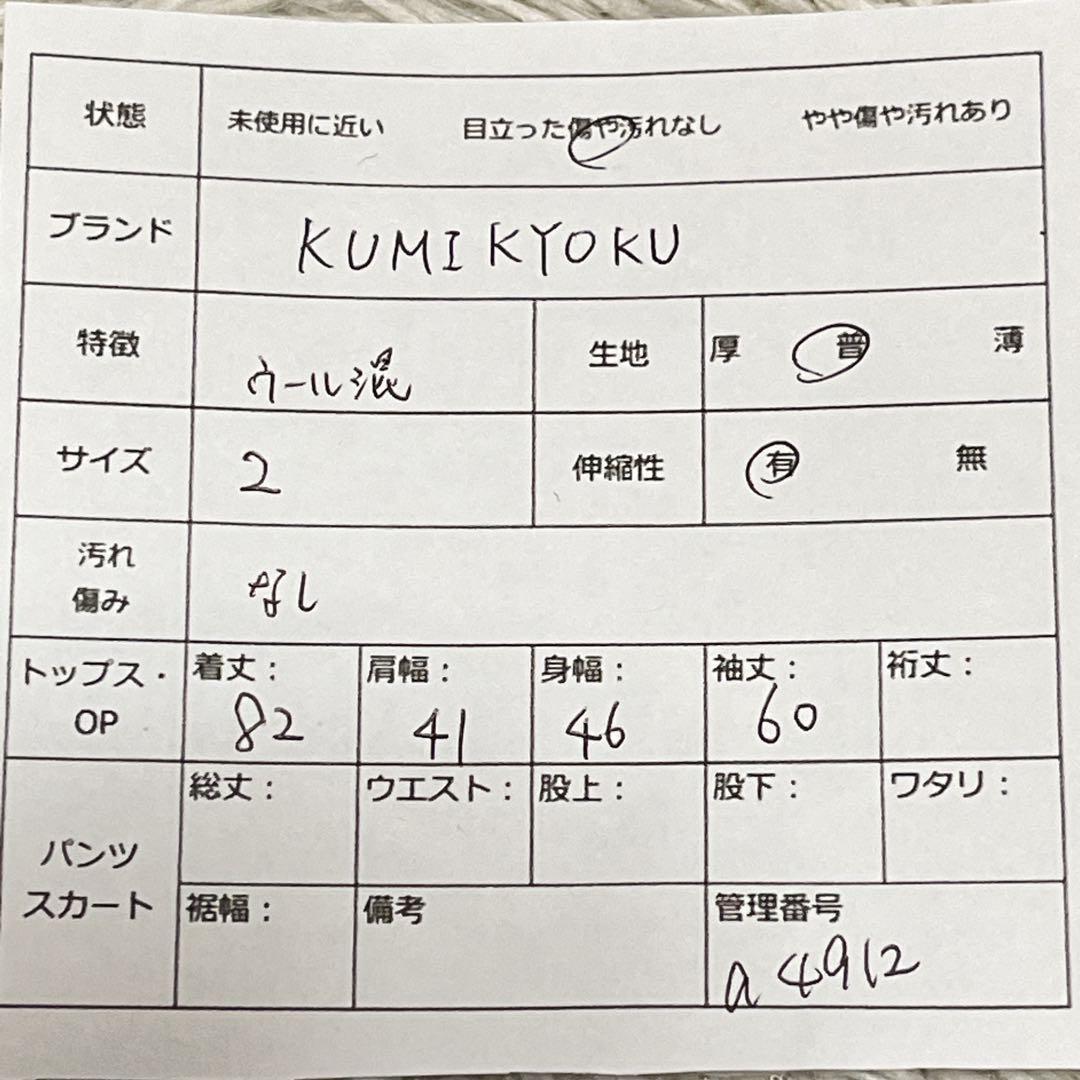 状態 未使用に近い 目立った傷や汚れなし やや傷や汚れあり
ブランド KUMIKYOKU
特徴 ウール混 生地 厚 普 薄
サイズ 2 伸縮性 有 無
汚れ
傷み なし
トップス・
OP
着丈: 肩幅: 身幅: 袖丈: 裄丈:
82 41 46 60
パンツ
スカート
総丈: ウエスト: 股上: 股下: ワタリ:
裾幅: 備考 管理番号
a4912